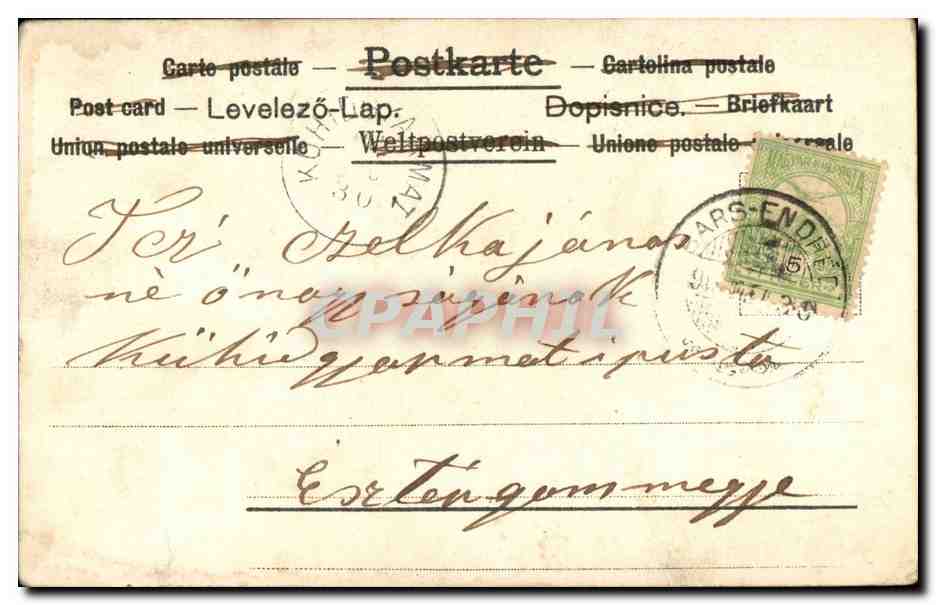 Carte postale — Postkarte — Cartolina postale
Post card — Levelező-Lap. Dopisnice. — Briefkaart
Union postale universelle — Weltpostverein — Unione postale universale
KÖHI GYARMAT
30
BARS-ENDRÉD
5
Tcś czelkajános
né önagyságának
Kűhidgyarmatipuszta
Esztergommegye
CPAPHIL